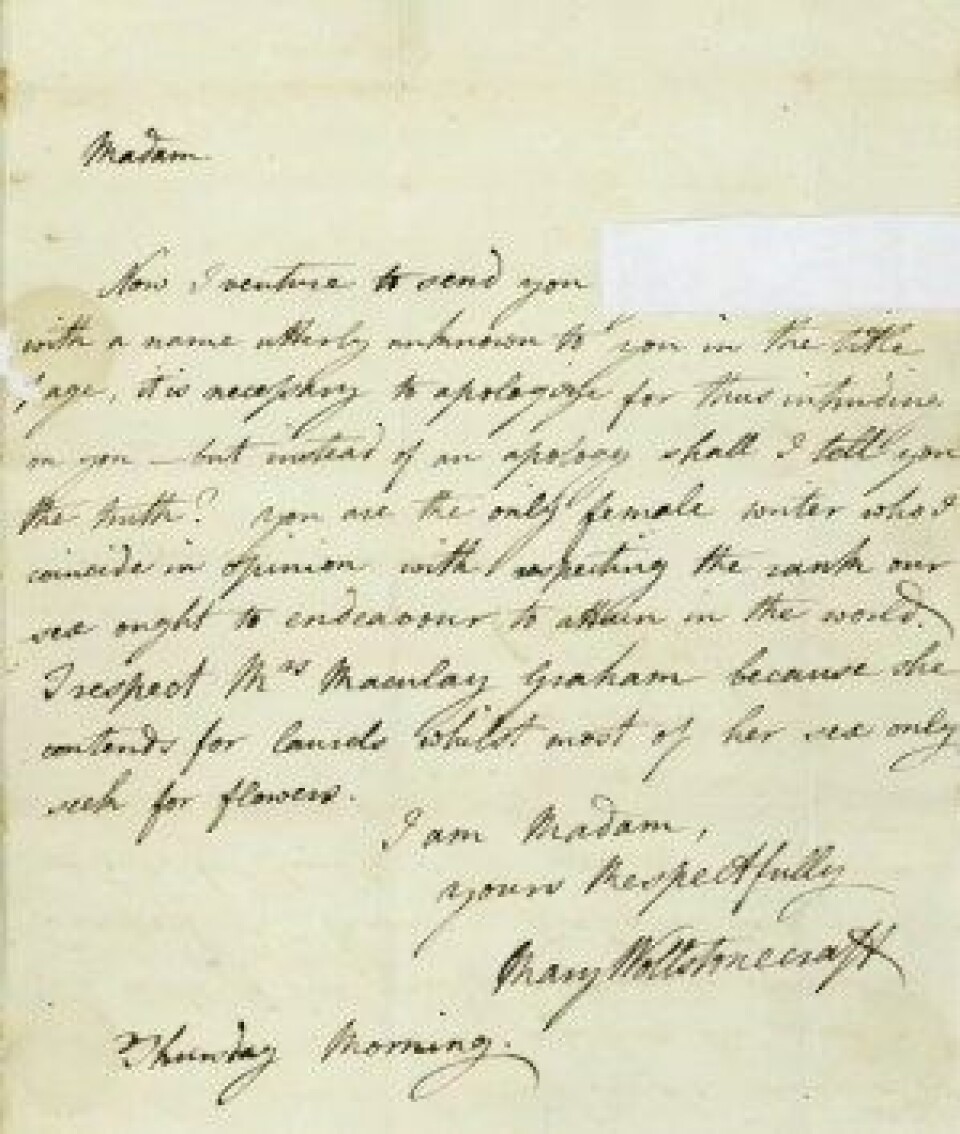 Madam
Now I venture to send you
with a name utterly unknown to you in the title
page, it is necessary to apologise for thus intruding
on you — but instead of an apology shall I tell you
the truth? You are the only female writer who I
coincide in opinion with respecting the rank our
sex ought to endeavour to attain in the world.
I respect Mrs Maculay Graham because she
contends for laurels whilst most of her sex only
seek for flowers.
I am Madam,
yours Respectfully
Mary Wollstonecraft
Thursday Morning.